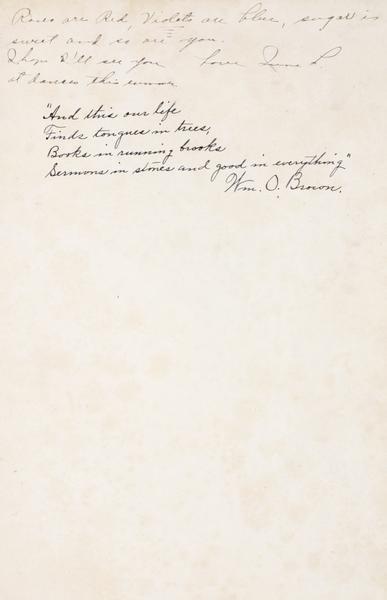 Roses are Red, Violets are blue, sugar is
sweet and so are you.
I hope I'll see you Love June L.
at dances this summer
"And this our life
Finds tongues in trees,
Books in running brooks
Sermons in stones and good in everything"
Wm. O. Brown.